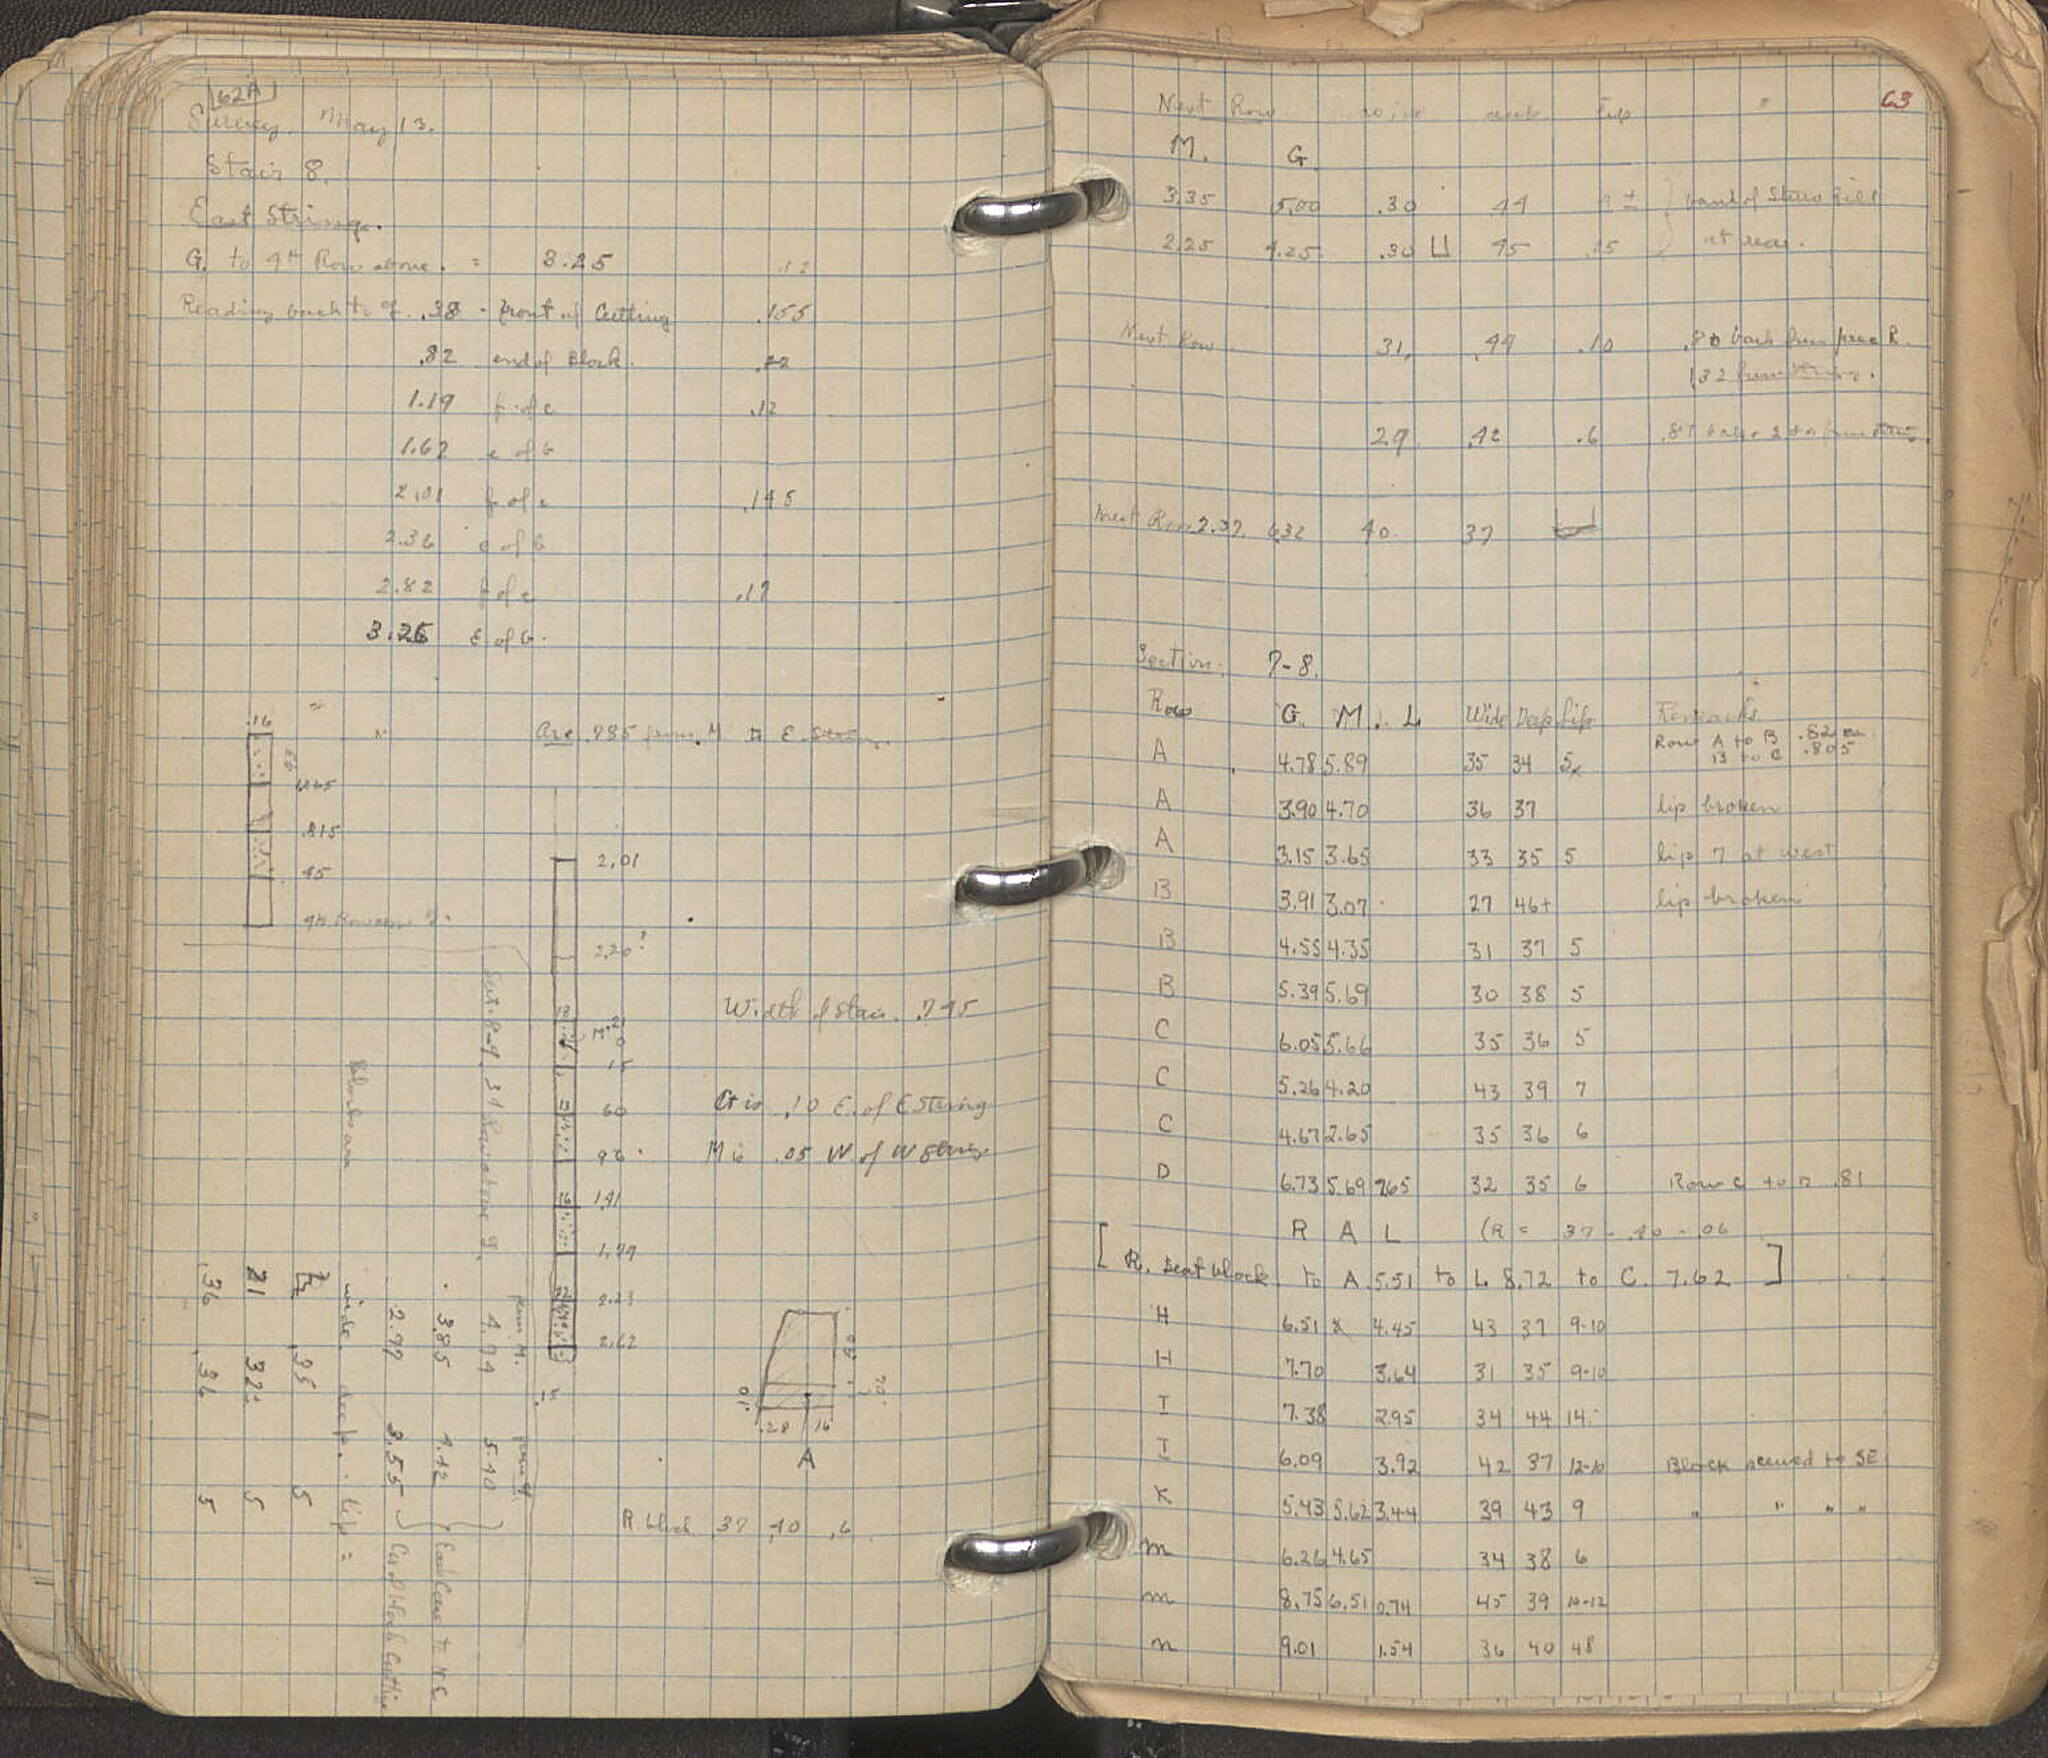 62A
Survey. May 13.
Stair 8.
East String.
G. to 4th Row above. = 3.25 .12
Reading back to G. .38 - front of Cutting .155
.82 end of Block. .22
1.19 f of c .12
1.62 e of b
2.01 f of c .145
2.36 e of b
2.82 f of c .17
3.26 E of b.
Arc .785 from M to E. String.
.16
.815
45
4th Row above G.
2.01
2.20?
18
15
13 60
96
16 1.41
1.79
22 2.23
2.62
Width of Stair. .745
G is .10 E. of E String
M is .05 W. of W String
.28 16
A
R block .37 .40 .6
Sect. 8-9 3d Row above G.
from M. from G.
4.74 5.40
3.85 4.42
2.97 3.55
Blocks are
wide deep. lip =
.35 5
21 32 5
.36 .36 5
63
Next Row. wide lip "
M. G.
3.35 5.00 .30 44 4± back of Stairs hill
2.25 4.25 .30 45 .15 at rear.
Next Row. 31. .44 .10 .80 back from prec R.
1.32 from String.
29 .42 .6
Next Row 2.37. 6.32 40. 37
Section. 7-8.
Row G. M. L Wide Deep Lip Remarks
Row A to B .82
B to C .805
A 4.78 5.89 35 34 5
A 3.90 4.70 36 37 lip broken
A 3.15 3.65 33 35 5 lip 7 at west
B 3.91 3.07 27 46+ lip broken
B 4.55 4.35 31 37 5
B 5.39 5.69 30 38 5
C 6.05 5.66 35 36 5
C 5.26 4.20 43 39 7
C 4.67 2.65 35 36 6
D 6.73 5.69 7.65 32 35 6 Row C to D .81
R A L (R = 37 - .40 - .06
[R. Seat block to A. 5.51 to L 8.72 to C. 7.62]
H 6.51 x 4.45 43 37 9-10
H 7.70 3.64 31 35 9-10
I 7.38 2.95 34 44 14
I 6.09 3.92 42 37 12-10 Block to SE
K 5.43 5.62 3.44 39 43 9 " " " "
m 6.26 4.65 34 38 6
m 8.75 6.51 0.74 45 39 10-12
n 9.01 1.54 36 40 48